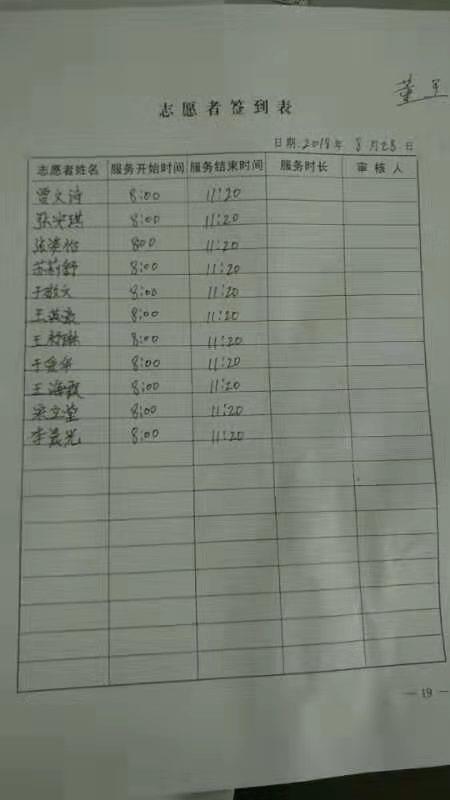 董
志愿者签到表
日期.2018年 8月28日
志愿者姓名 服务开始时间 服务结束时间 服务时长 审核人
曾文诗 8:00 11:20
8:00 11:20
800 11:20
苏莉舒 8:00 11:20
于敬文 8:00 11:20
王英豪 8:00 11:20
王舒琳 8:00 11:20
于爱华 8:00 11:20
王海霞 8:00 11:20
宋立堂 8:00 11:20
李晨光 8:00 11:20
— 19 —